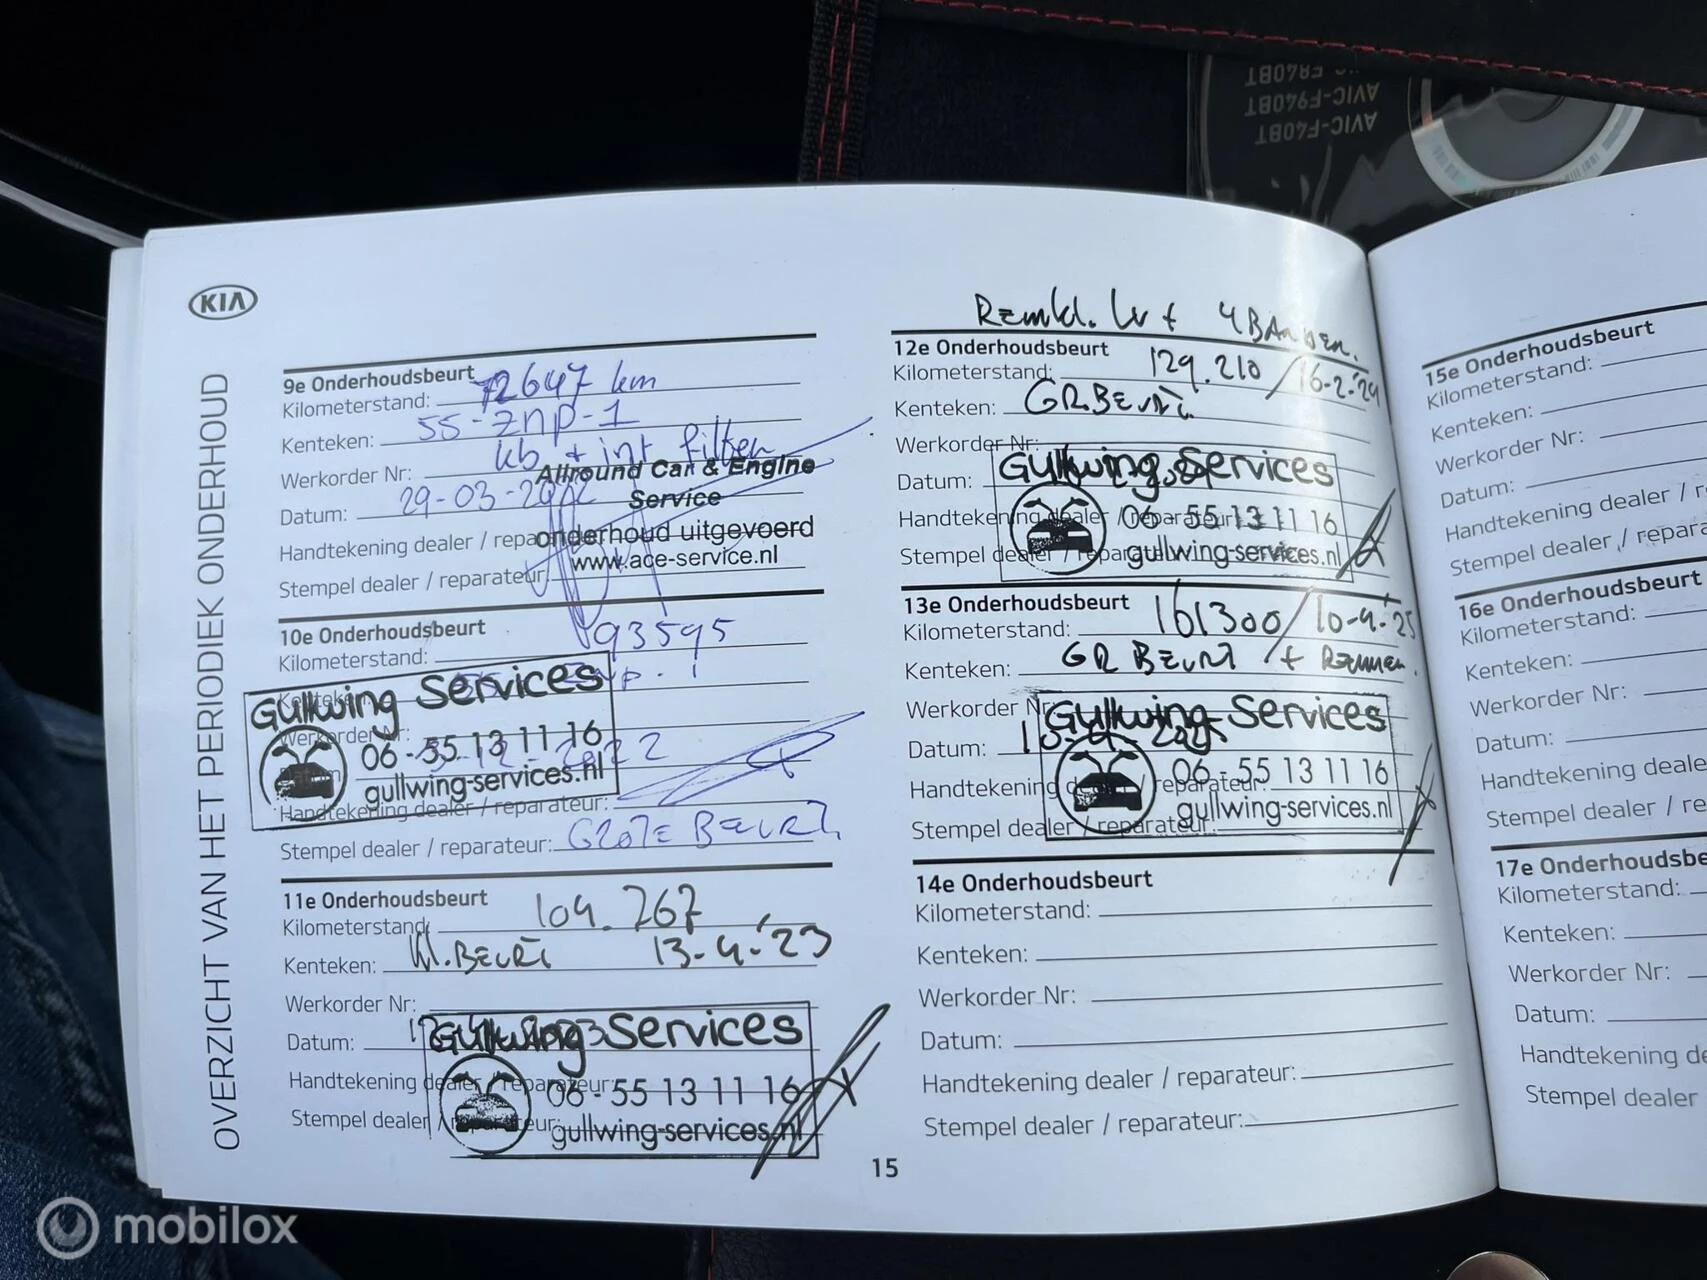 AVIC-F840BT
AVIC-F940BT
AVIC-F40BT
KIA
OVERZICHT VAN HET PERIODIEK ONDERHOUD
9e Onderhoudsbeurt
Kilometerstand: 72647 km
Kenteken: 55-ZNP-1
Werkorder Nr: kb + int filter
Datum: 29-03-2022
Handtekening dealer / reparateur:
Stempel dealer / reparateur:
Allround Car & Engine
Service
onderhoud uitgevoerd
www.ace-service.nl
10e Onderhoudsbeurt
Kilometerstand: 93595
Kenteken:
Werkorder Nr:
Datum: 5-12-2022
Handtekening dealer / reparateur:
Stempel dealer / reparateur: GROTE BEURT.
Gullwing Services
06-55 13 11 16
gullwing-services.nl
11e Onderhoudsbeurt
Kilometerstand: 104.267
Kenteken: Kl. BEURT 13-4-'23
Werkorder Nr:
Datum:
Handtekening dealer / reparateur:
Stempel dealer / reparateur:
Gullwing Services
06-55 13 11 16
gullwing-services.nl
Remkl. lv + 4 BANDEN.
12e Onderhoudsbeurt
Kilometerstand: 129.210 / 16-2-'24
Kenteken: GR.BEURT.
Werkorder Nr:
Datum:
Handtekening dealer / reparateur:
Stempel dealer / reparateur:
Gullwing Services
06-55 13 11 16
gullwing-services.nl
13e Onderhoudsbeurt
Kilometerstand: 161300 / 10-4-'25
Kenteken: GR BEURT / + Remmen.
Werkorder Nr:
Datum: 10-4-2025
Handtekening dealer / reparateur:
Stempel dealer / reparateur:
Gullwing Services
06-55 13 11 16
gullwing-services.nl
14e Onderhoudsbeurt
Kilometerstand:
Kenteken:
Werkorder Nr:
Datum:
Handtekening dealer / reparateur:
Stempel dealer / reparateur:
15
15e Onderhoudsbeurt
Kilometerstand:
Kenteken:
Werkorder Nr:
Datum:
Handtekening dealer / r
Stempel dealer / repara
16e Onderhoudsbeurt
Kilometerstand:
Kenteken:
Werkorder Nr:
Datum:
Handtekening deale
Stempel dealer / re
17e Onderhoudsbe
Kilometerstand:
Kenteken:
Werkorder Nr:
Datum:
Handtekening de
Stempel dealer
mobilox